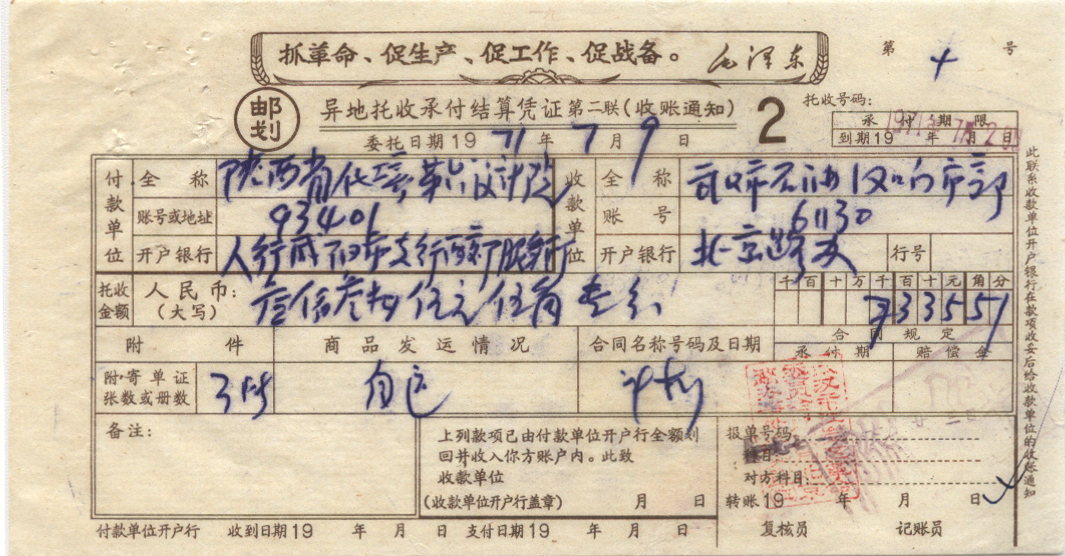 抓革命、促生产、促工作、促战备。 毛泽东
第 4 号
邮划
异地托收承付结算凭证 第二联(收账通知) 2
托收号码:
承付期限
到期19 年 月 日
委托日期 19 71 年 7 月 9 日
付款单位 全称 陕西省化工第六设计院
收款单位 全称 武汉市石油
账号或地址 93401
账号 61130
开户银行 人行咸阳市支行
开户银行 北京路
行号
托收金额 人民币:(大写) 叁佰叁拾伍元伍角壹分
千百十万千百十元角分
33551
附件 商品发运情况 合同名称号码及日期
合同规定
承付期 赔偿金
附寄单证张数或册数 3 自运 计划
备注:
上列款项已由付款单位开户行全额划
回并收入你方账户内。此致
收款单位
(收款单位开户行盖章) 月 日
报单号码
科目
对方科目
转账19 年 月 日
付款单位开户行 收到日期19 年 月 日 支付日期19 年 月 日 复核员 记账员
此联系收款单位开户银行在款项收妥后给收款单位的收账通知